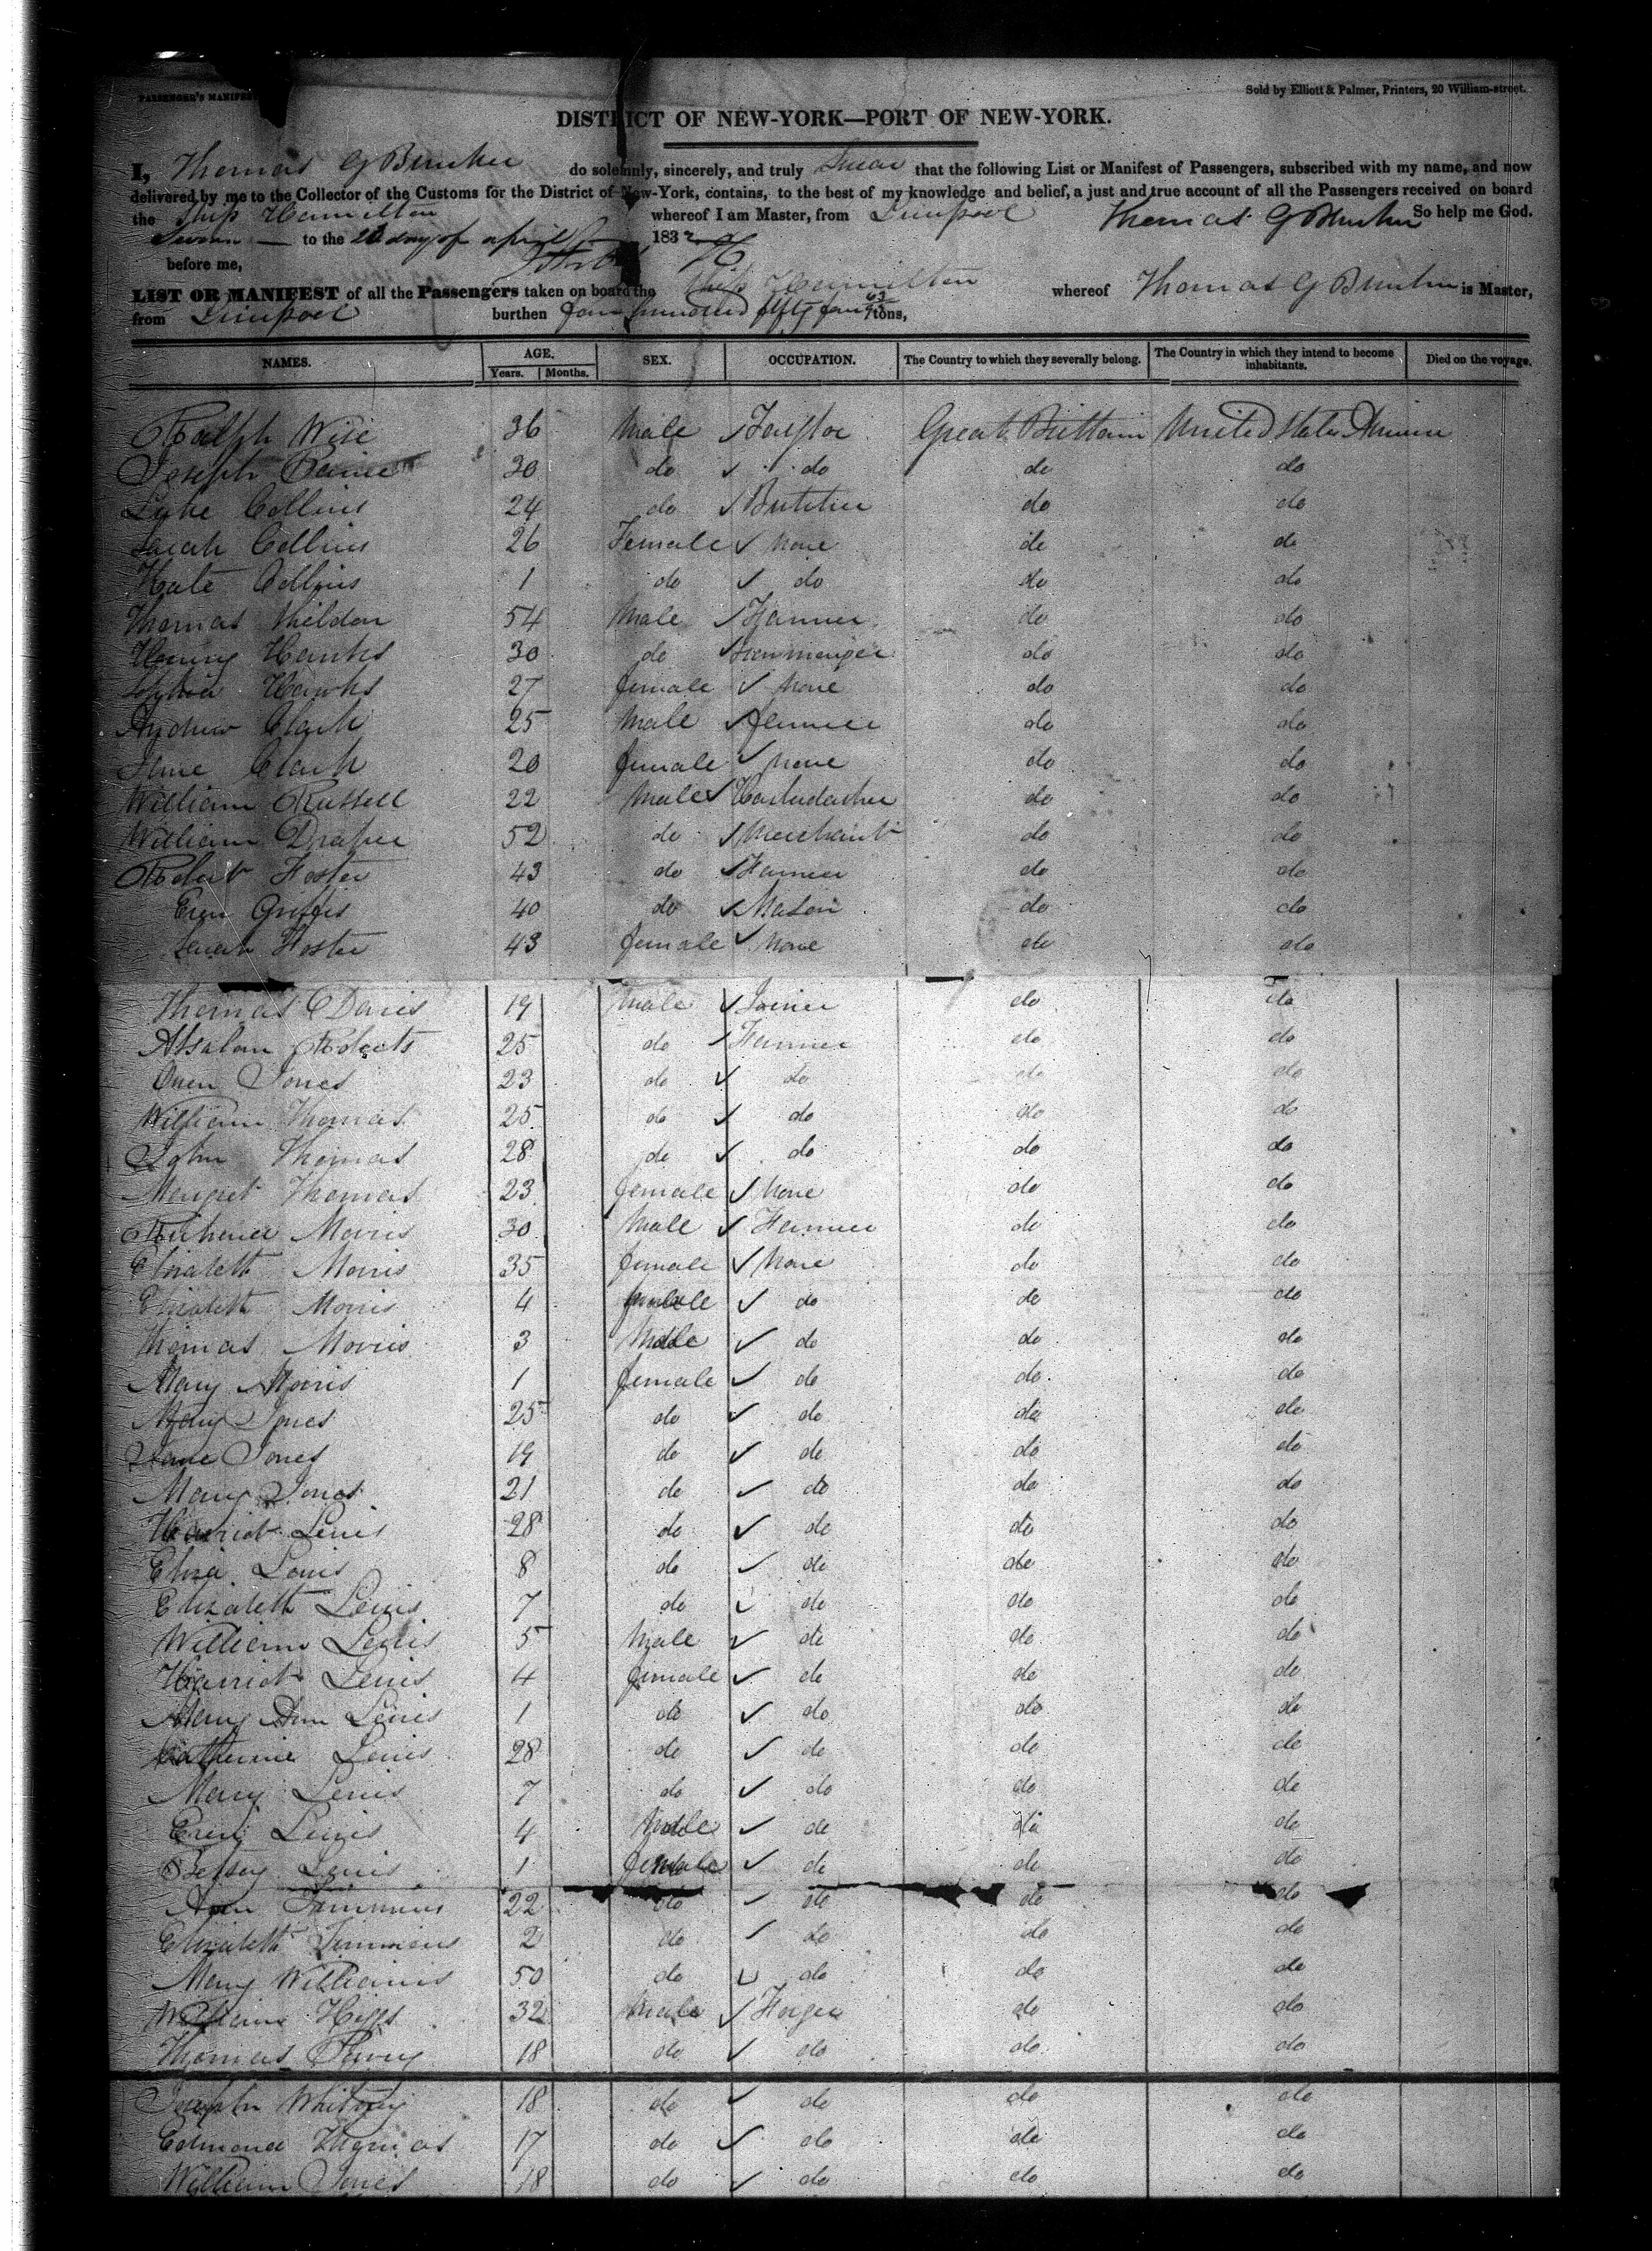 PASSENGER'S MANIFEST
Sold by Elliott & Palmer, Printers, 20 William-street.
DISTRICT OF NEW-YORK—PORT OF NEW-YORK.
I, Thomas G Bunker do solemnly, sincerely, and truly Swear that the following List or Manifest of Passengers, subscribed with my name, and now
delivered by me to the Collector of the Customs for the District of New-York, contains, to the best of my knowledge and belief, a just and true account of all the Passengers received on board
the Ship Hamilton whereof I am Master, from Liverpool Thomas G Bunker So help me God.
Sworn to the 20 day of april 1832
before me,
LIST OR MANIFEST of all the Passengers taken on board the Ship Hamilton whereof Thomas G Bunker is Master,
from Liverpool burthen four hundred fifty four 63 tons,
NAMES. AGE. SEX. OCCUPATION. The Country to which they severally belong. The Country in which they intend to become inhabitants. Died on the voyage.
Years. Months.
Ralph Wise 36 Male Great Brittain United States
Joseph 30 do do do do
Luke Collins 24 do Butcher do do
Sarah Collins 26 Female None do do
Kate Collins 1 do do do do
Thomas 54 Male Farmer do do
Henry Hawks 30 do do do
Hawks 27 female None do do
Andrew Clark 25 Male farmer do do
Jane Clark 20 female None do do
William Russell 22 Male Haberdasher do do
William Draper 52 do Merchant do do
Robert Foster 43 do Farmer do do
Even Griffis 40 do Mason do do
Sarah Foster 43 female None do do
Thomas Davis 19 Male Joiner do do
Absalom Roberts 25 do Farmer do do
Owen Jones 23 do do do do
William Thomas 25 do do do do
John Thomas 28 do do do do
Margret Thomas 23 female None do do
Morris 30 Male Farmer do do
Elizabeth Morris 35 female None do do
Elizabeth Morris 4 female do do do
Thomas Morris 3 Male do do do
Mary Morris 1 female do do do
Mary Jones 25 do do do do
Jane Jones 19 do do do do
Mary Jones 21 do do do do
Harriot Lewis 28 do do do do
Eliza Lewis 8 do do do do
Elizabeth Lewis 7 do do do do
William Lewis 5 Male do do do
Harriot Lewis 4 female do do do
Mary Ann Lewis 1 do do do do
Catherine Lewis 28 do do do do
Mary Lewis 7 do do do do
Even Lewis 4 Male do do do
Betsey Lewis 1 female do do do
Ann Timmins 22 do do do do
Elizabeth Timmins 2 do do do do
Mary Williams 50 do do do do
William Higgs 32 Male Forger do do
Thomas 18 do do do do
Joseph Whitney 18 do do do do
Edmond Thomas 17 do do do do
William Jones 18 do do do do